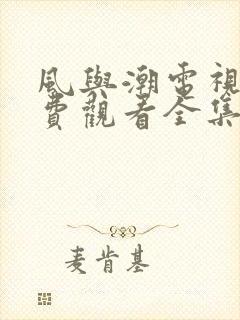 風與潮電視
費觀看全集
麦肯基